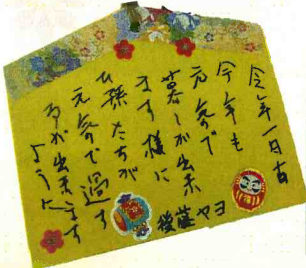 今年も
元気で
暮しが出来
ます様に
ひ孫たちが
元気で過す
が出来ます
ように
後藤ヤヨ